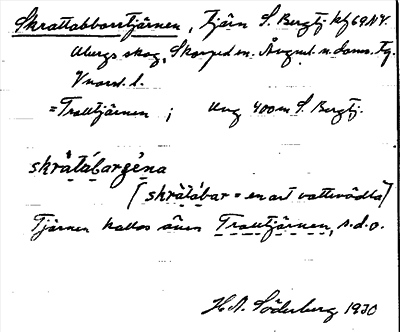 Skrattabborrtjärnen, Tjärn S. Bergtj. kf 69 NV.
skog, Skorped sn. Ångml. n. doms. fg.
Vnorrl. l.
= Trolltjärnen ; Ung 400 m S. Bergtj.
skràtábargéna
[skràtàbar = en art vattenödla]
Tjärnen kallas även Trolltjärnen, s.d.o.
H.N. Söderberg 1930